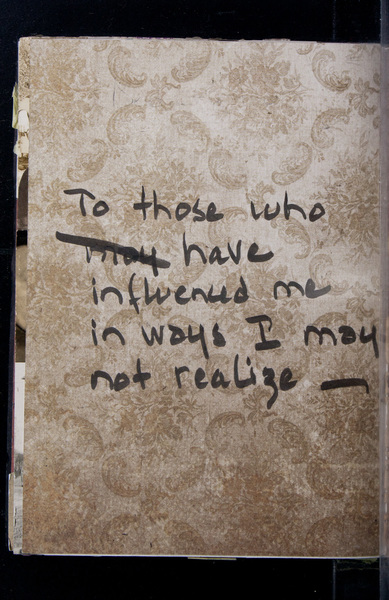 To those who
may have
influenced me
in ways I may
not realize —